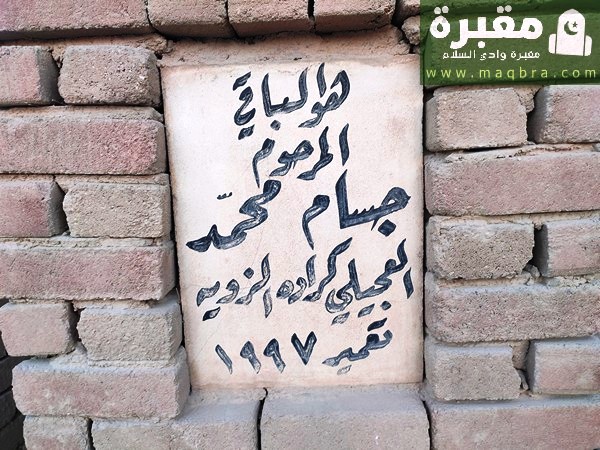 مقبرة
مقبرة وادي السلام
www.maqbra.com
هو الباقي
المرحوم
جسام محمّد
العجيلي كراده الزويه
تعمير ١٩٩٧